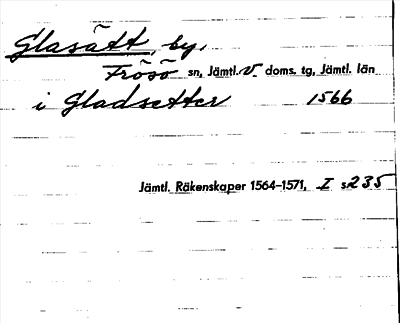 Glasätt, by,
Frösö sn, Jämtl. V doms. tg, Jämtl. län
i Gladsetter 1566
Jämtl. Räkenskaper 1564–1571, I s 235